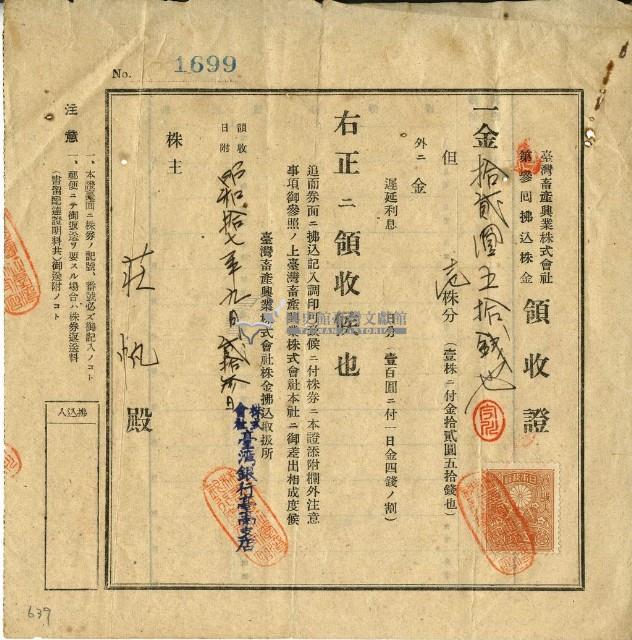 No. 1699
臺灣畜産興業株式會社
第參囘拂込株金
領收證
一金拾貳圓五拾錢也
但 壱株分(壹株ニ付金拾貳圓五拾錢也)
外ニ金
遲延利息
壹百圓ニ付一日金四錢ノ割)
右正ニ領收候也
追而券面ニ拂込記入調印可致候ニ付株券ニ本證添附欄外注意
事項御參照ノ上臺灣畜産興業株式會社本社ニ御差出相成度候
臺灣畜産興業株式會社株金拂込取扱所
株式會社臺灣銀行臺南支店
領收日附
昭和拾七年九月
株主
莊
殿
注意
一、本證裏面ニ株券ノ記號、番號必ズ御記入ノコト
一、郵便ニテ御返送ヲ要スル場合ハ株券返送料
(書留配達證明料共)御送附ノコト
拂込人
639